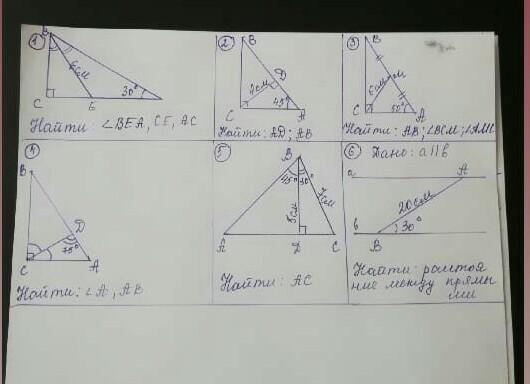 1
B
6см
30°
C
E
Найти: ∠BEA, CE, AC
2
B
4см
D
45°
C
A
Найти: AD; AB
3
B
6см
M
50°
C
A
Найти: AB; ∠BCM; ∠AMC
B
D
75°
C
A
Найти: ∠A, AB
5
B
45°
30°
7см
A
D
C
Найти: AC
6 Дано: a||b
a
A
20см
b
30°
B
Найти: расстоя
ние между прямы
ми